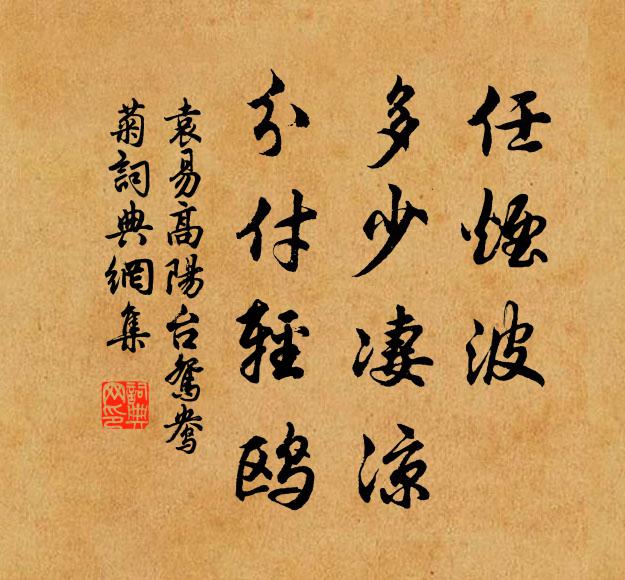 任煙波
多少淒涼
分付輕鷗
袁易高陽台鴛鴦
菊詞典網集
詞典網印